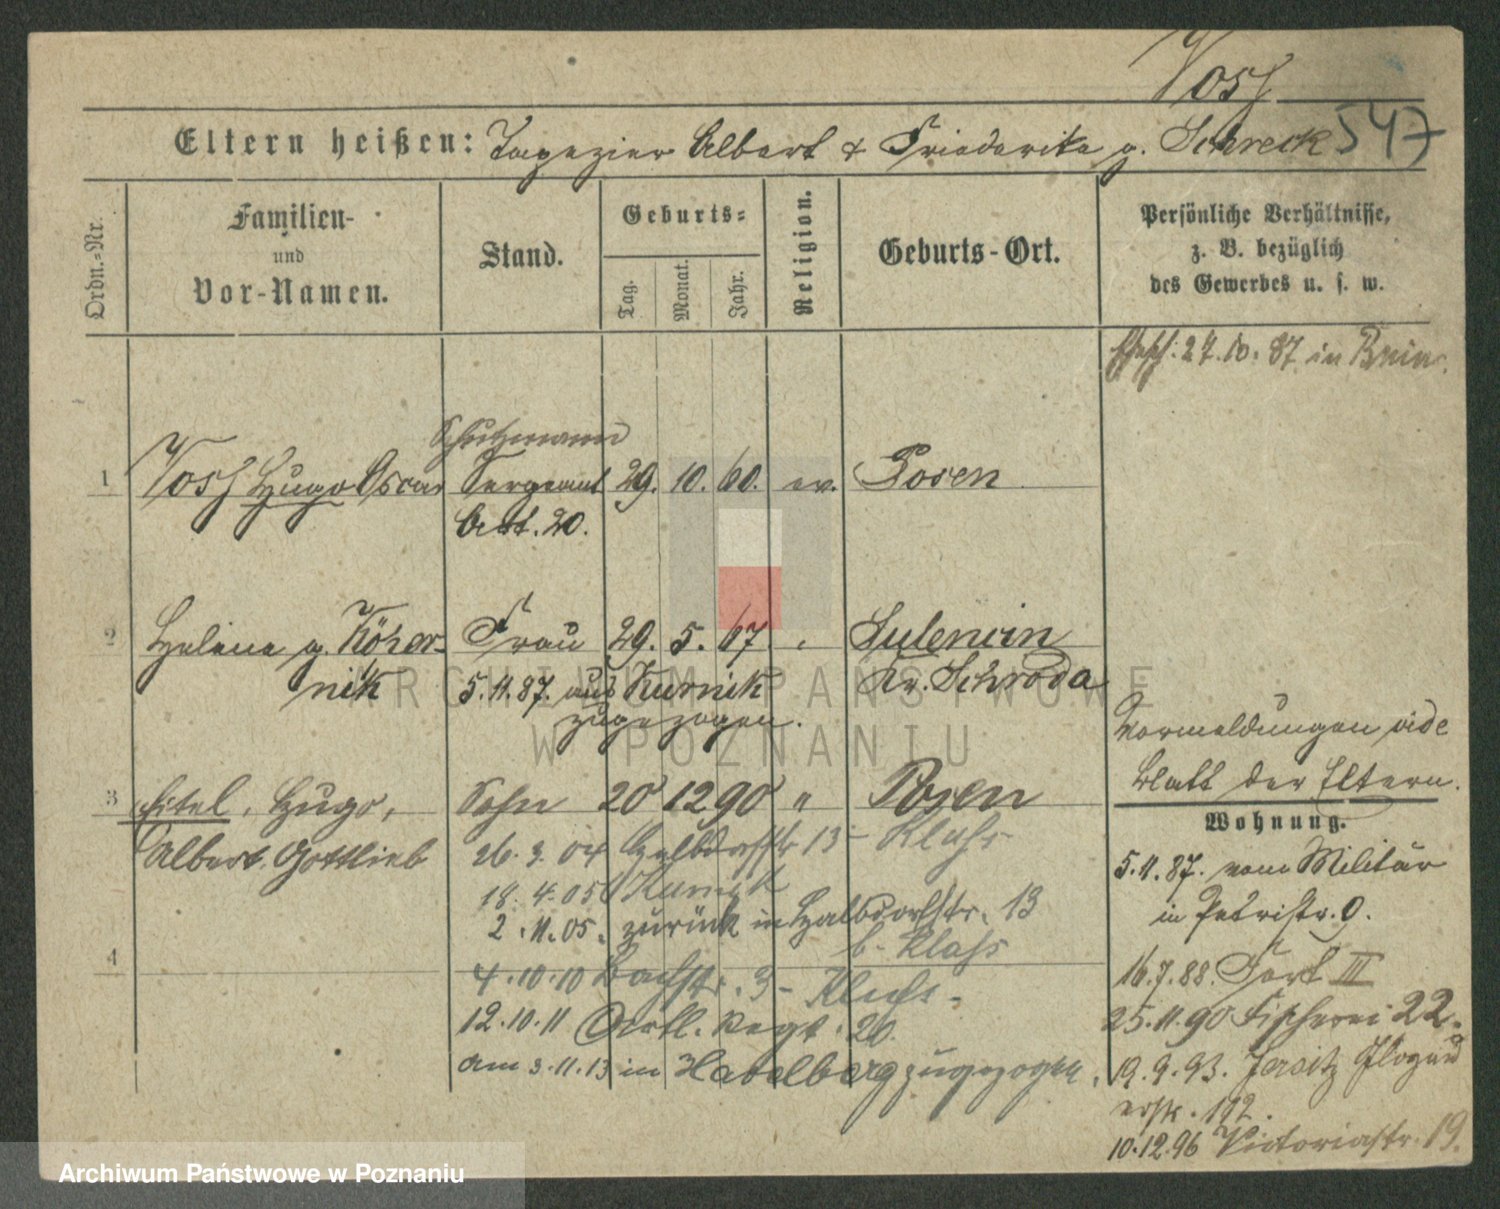 Vosz
547
Eltern heißen: Tapezier Albert & Friederike g. Schreck
Ordn.-Nr.
Familien-
und
Vor-Namen.
Stand.
Geburts=
Tag.
Monat.
Jahr.
Religion.
Geburts-Ort.
Persönliche Verhältnisse,
z. B. bezüglich
des Gewerbes u. s. w.
Ehesch. 27.10.87 in Bnin.
Schutzmann
1 Vosz Hugo Oscar Sergeant 29. 10. 60. ev. Posen
Art. 20.
2 Helene g. Frau 29. 5. 67. Sulencin
nik 5.11.87. aus Kurnik Kr. Schroda
zugezogen.
Vormeldungen vide
Blatt der Eltern.
3 Eitel, Hugo, Sohn 20 12 90 " Posen
Albert, Gottlieb
26. 3. 04 Halbdorfstr 13 -
18. 4. 05 Kurnik
2. 11. 05. zurück in Halbdorfstr. 13
b.
4
4.10.10 Bachstr. 3 -
12.10.11 Artl. Regt. 20.
am 3.11.13 in Havelberg zugezogen.
Wohnung.
5.11.87. vom Militär
in Petristr. 9.
16.7.88. Fort III
25.11.90 Fischerei 22.
19.9.93. Jersitz Glogau
erstr. 112.
10.12.96 Victoriastr. 19.
ARCHIWUM PAŃSTWOWE
W POZNANIU
Archiwum Państwowe w Poznaniu